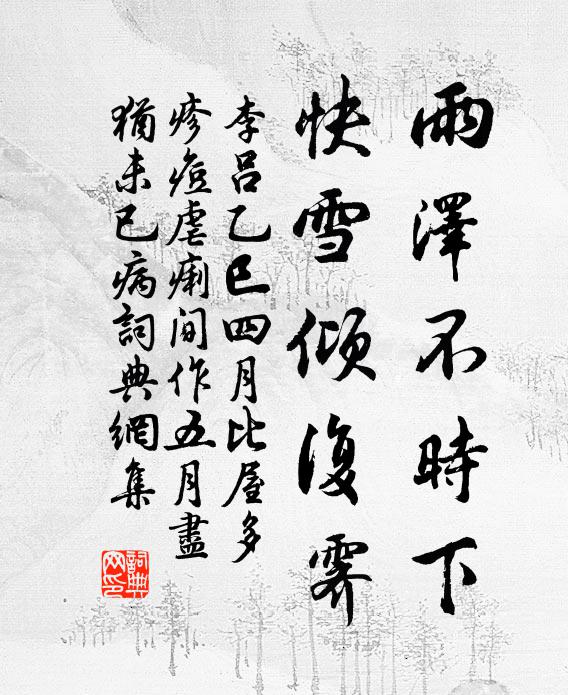 雨澤不時下
快雪傾復霽
李呂乙巳四月比屋多
疹痘虐痢間作五月盡
猶未已病詞典網集
詞典
网印